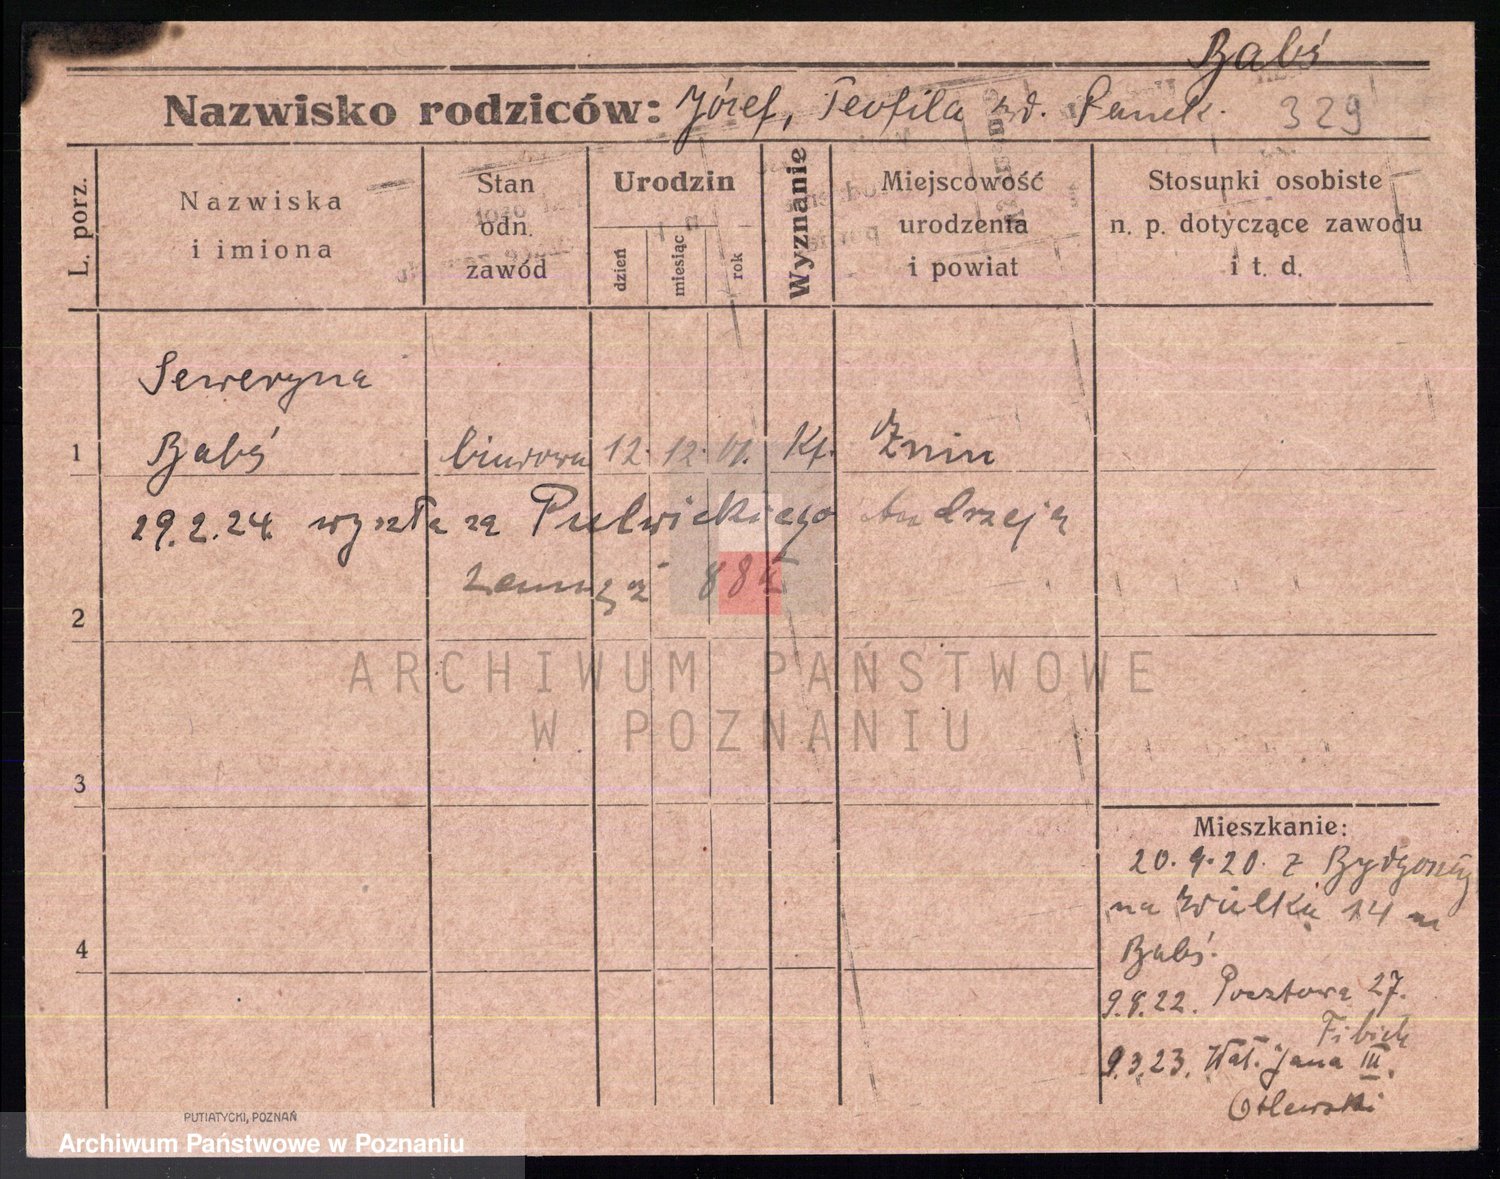 Babś
Nazwisko rodziców: Józef, Teofila zd. Panek. 329
L. porz.
Nazwiska
i imiona
Stan
odn.
zawód
Urodzin
dzień
miesiąc
rok
Wyznanie
Miejscowość
urodzenia
i powiat
Stosunki osobiste
n. p. dotyczące zawodu
i t. d.
Seweryna
1 Babś biurowa 12. 12. 01. Kf. Żnin
29.2.24. wyszła za Pulwickiego Andrzeja
zamąż 884
2
ARCHIWUM PAŃSTWOWE
W POZNANIU
3
Mieszkanie:
20.9.20. z Bydgoszczy
na Wielkie 14 m
4
Babś.
9.8.22. Pocztowa 27.
Fibich
9.3.23. Wał. Jana III.
Otlewski
PUTIATYCKI, POZNAŃ
Archiwum Państwowe w Poznaniu